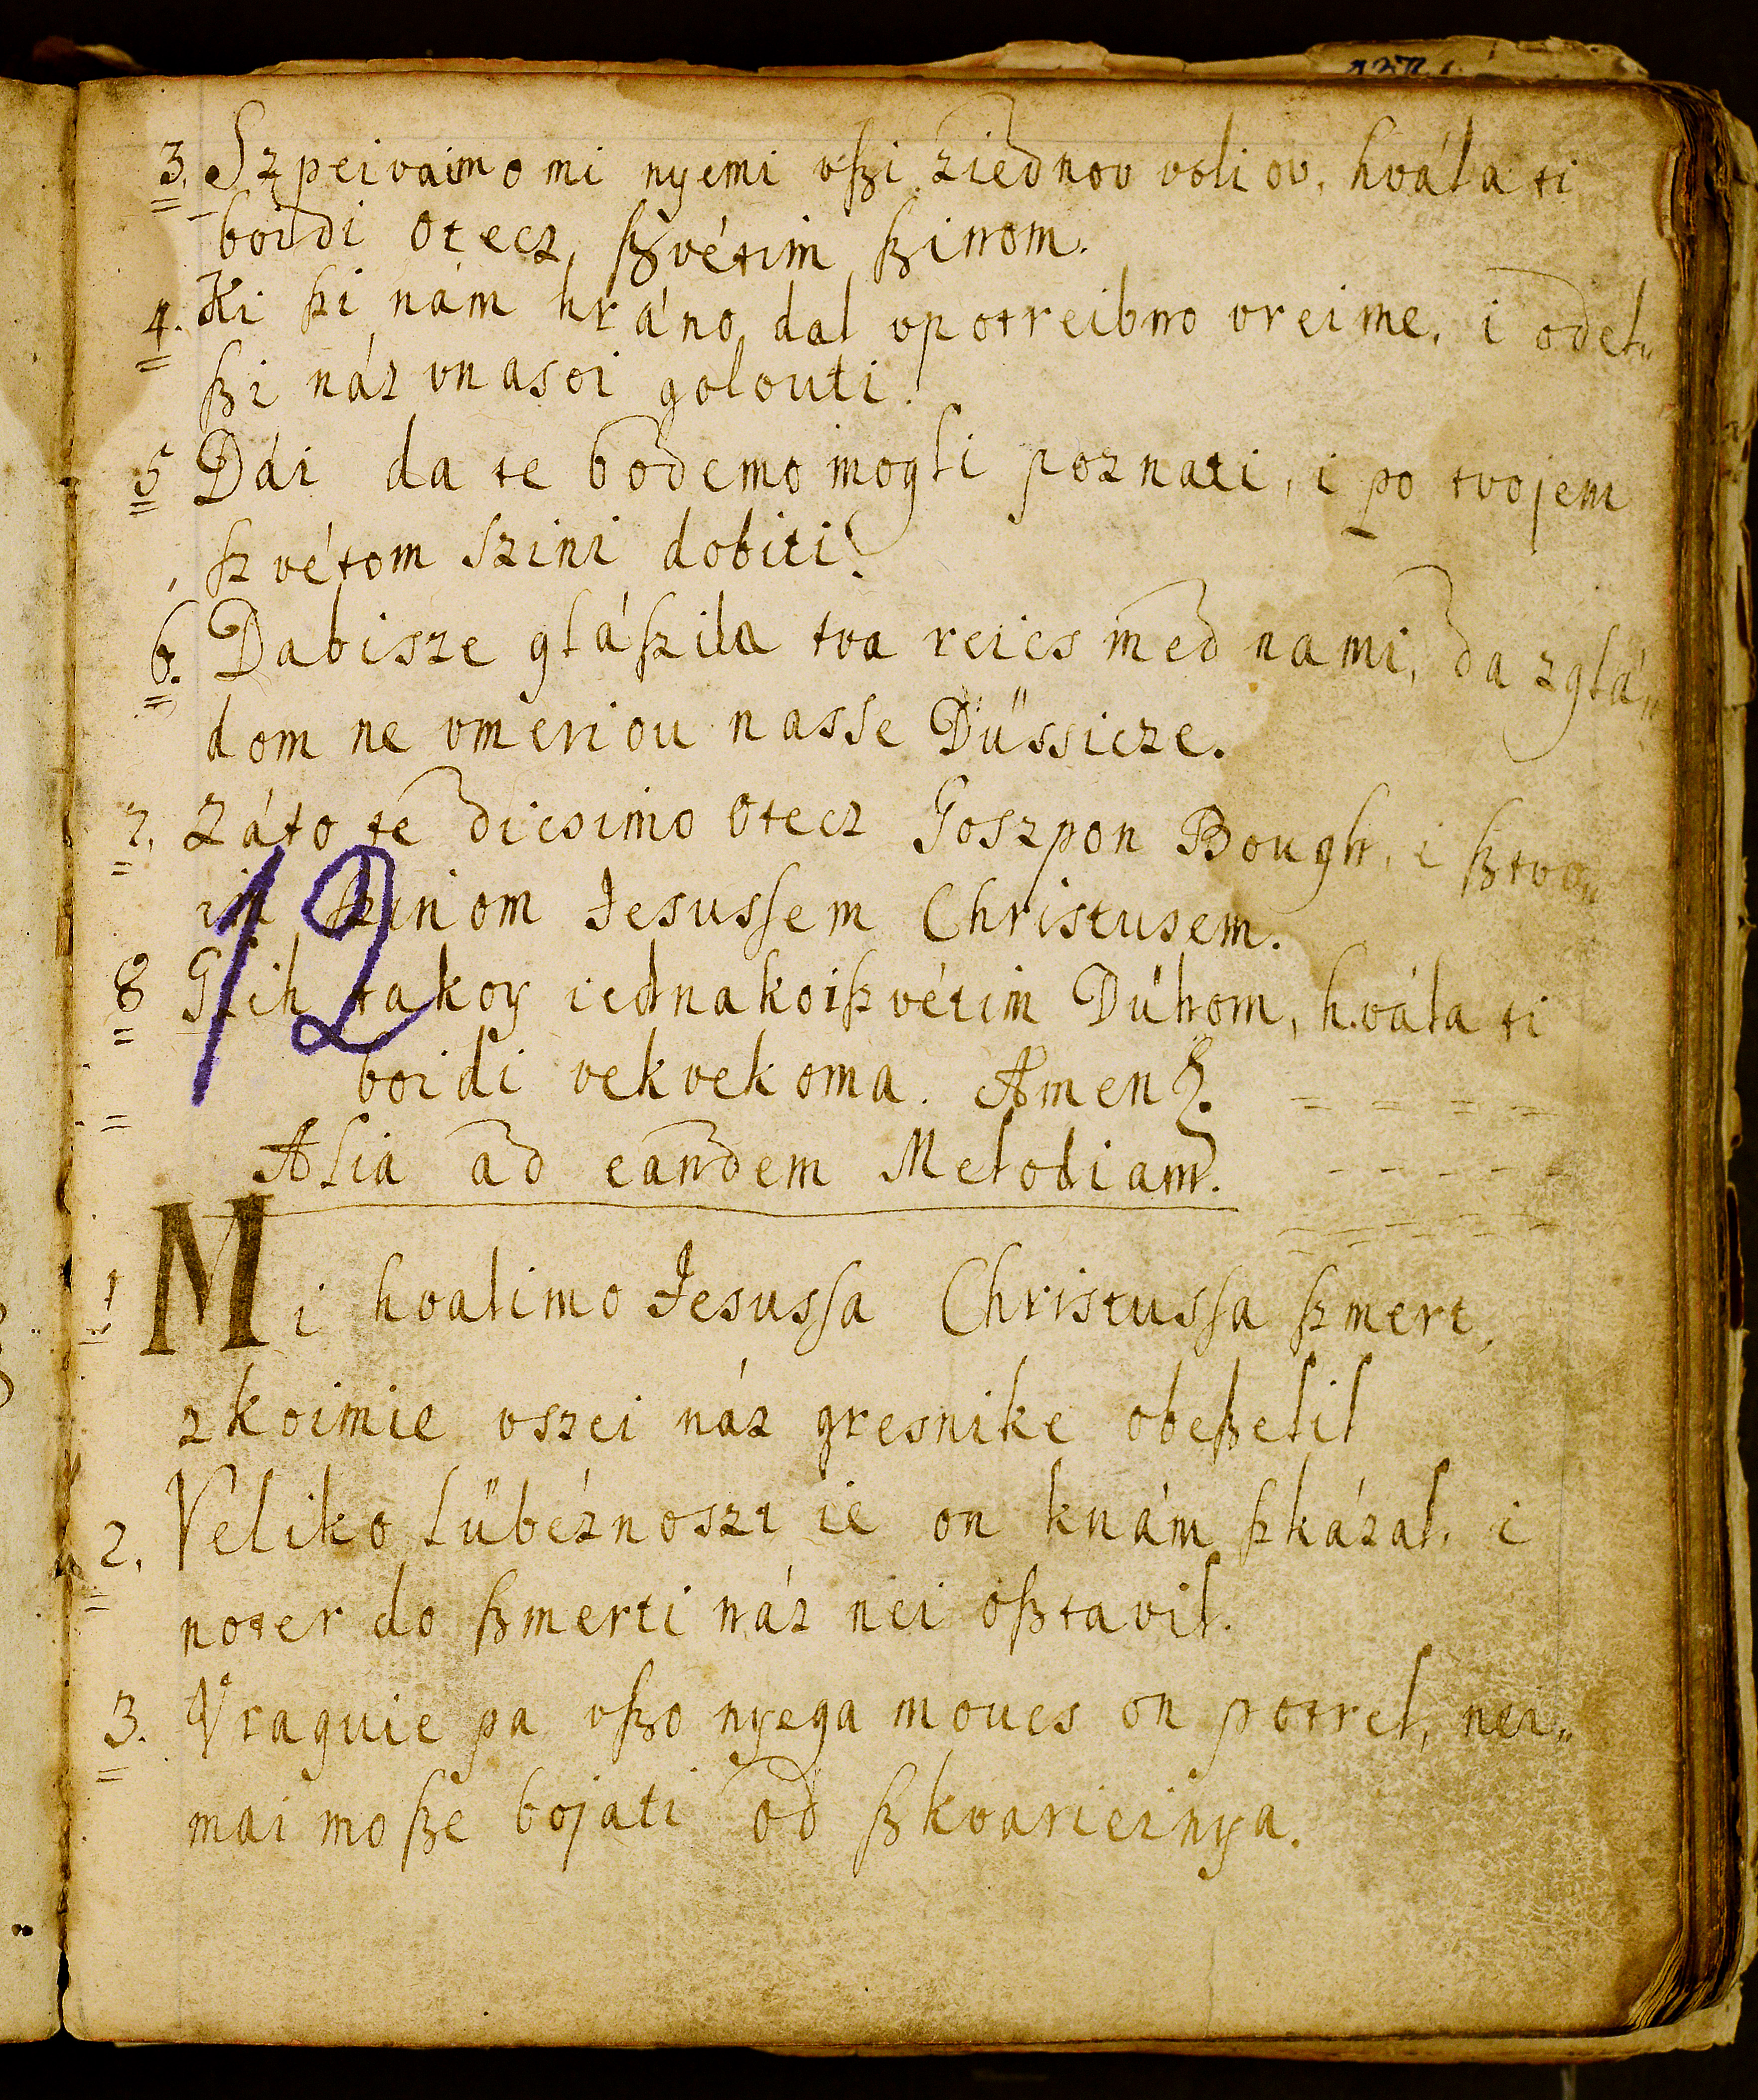 3. Szpeivaimo mi nyemi vßi ziednov voliov, hvála ti
boidi Otecz, ßvétim ßinom.
4. Ki ßi nám hráno dal vpotreibno vreime, i odel„
ßi náz vnasoi golouti.
5 Dái da te bodemo mogli poznati, i po tvojem
ßvétom Szini dobiti.
6. Dabisze gláßila tva reics med nami, da zglá„
dom ne vmeriou nasse Düssicze.
7. Záto te dicsimo Otecz Goszpon Bough, i ßtvo„
im ßiniom Jesussem Christusem.
12
8 Glih takoy iednakoißvétim Dühom, hvála ti
boidi vekvekoma. Amen.
Alia ad eandem Melodiam.
1 Mi hvalimo Jesussa Christussa ßmert,
zkoimie vszei náz gresnike obeßelil
2. Veliko Lübéznoszt ie on knám ßkázal, i
noter do ßmerti náz nei oßtavil.
3. Vraguie pa vßo nyega moucs on potrel, nei„
mai moße bojati od ßkvarieinya.